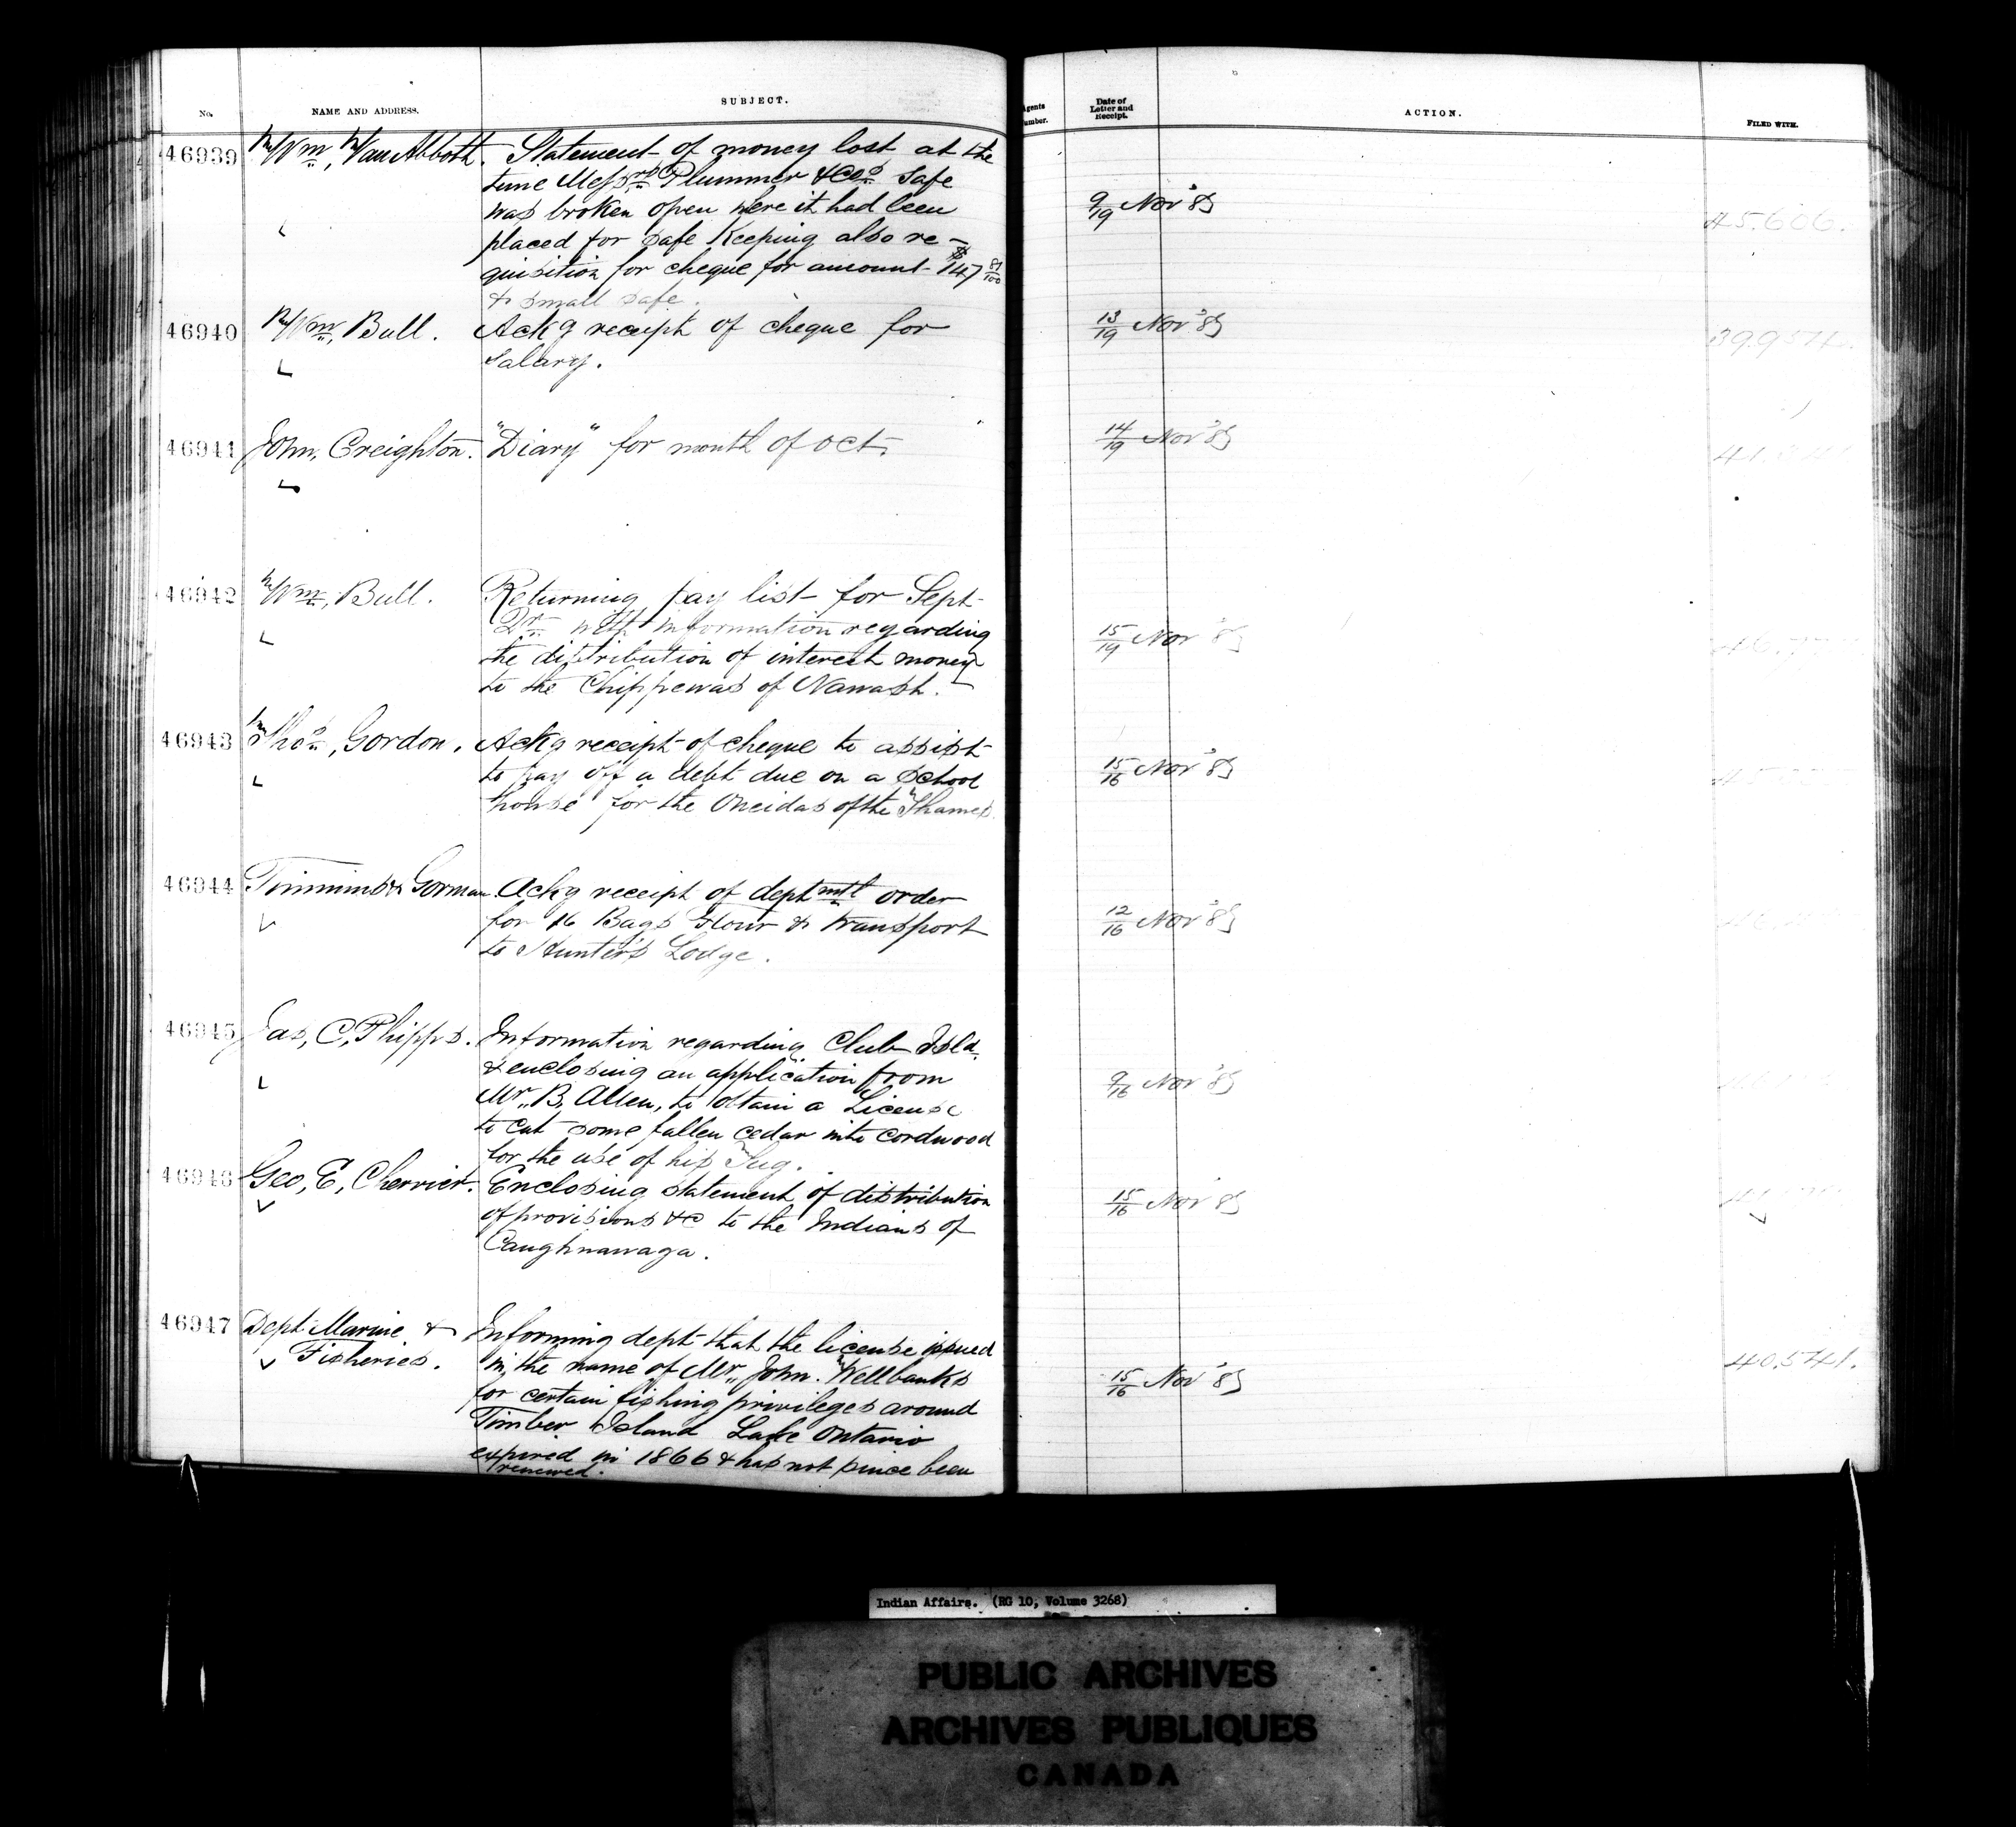 No. NAME AND ADDRESS. SUBJECT. Agents Number. Date of Letter and Receipt. ACTION. FILED WITH.
46939 Wm, Van Abbott. Statement of money lost at the
time Messrs Plummer & Cos safe
was broken open were it had been
placed for safe keeping also re-
quisition for cheque for amount $147 81/100
& small safe.
9/19 Nov '85
45.606.
46940 Wm, Bull. Ackg receipt of cheque for
Salary.
13/19 Nov '85
46941 John, Creighton. "Diary" for month of Oct.
14/19 Nov '85
46942 Wm, Bull. Returning pay list for Sept
Qr with information regarding
the distribution of interest money
to the Chippewas of Nawash.
15/19 Nov '85
46943 Thos, Gordon. Ackg receipt of cheque to assist
to pay off a debt due on a School
house for the Oneidas of the Thames.
15/16 Nov '85
46944 Timmins & Gorman. Ackg receipt of deptmtl order
for 16 Bags Flour & transport
to Hunter's Lodge.
12/16 Nov '85
46945 Jas, C, Phipps. Information regarding Club Isld.
& enclosing an application from
Mr. B. Allen, to obtain a License
to cut some fallen cedar into cordwood
for the use of his Tug.
9/16 Nov '85
46946 Geo, E, Cherrier. Enclosing statement of distribution
of provisions &c to the Indians of
Caughnawaga.
15/16 Nov '85
46947 Dept Marine & Fisheries. Informing dept that the license issued
in the name of Mr. John. Wellbanks
for certain fishing privileges around
Timber Island Lake Ontario
expired in 1866 & has not since been
renewed.
15/16 Nov '85
40.541.
Indian Affairs. (RG 10, Volume 3268)
PUBLIC ARCHIVES
ARCHIVES PUBLIQUES
CANADA